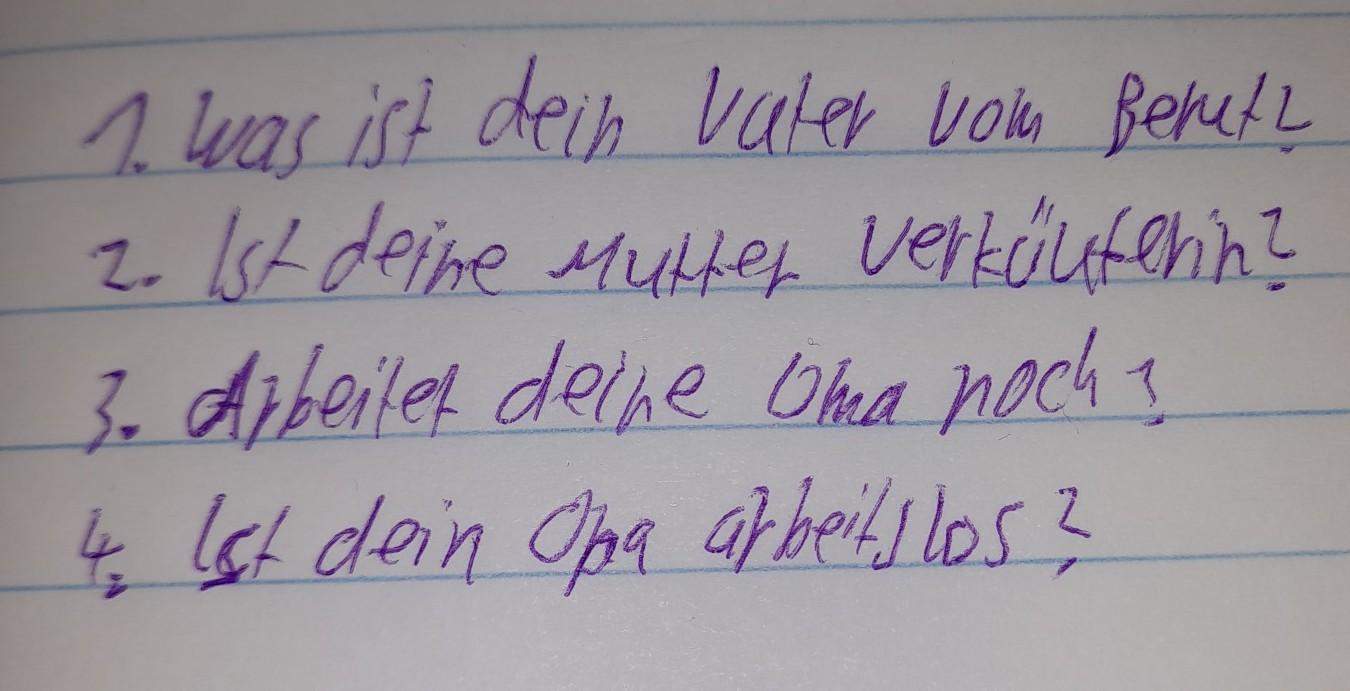 1. Was ist dein Vater vom Beruf?
2. Ist deine Mutter Verkäuferin?
3. Arbeitet deine Oma noch?
4. Ist dein Opa arbeitslos?